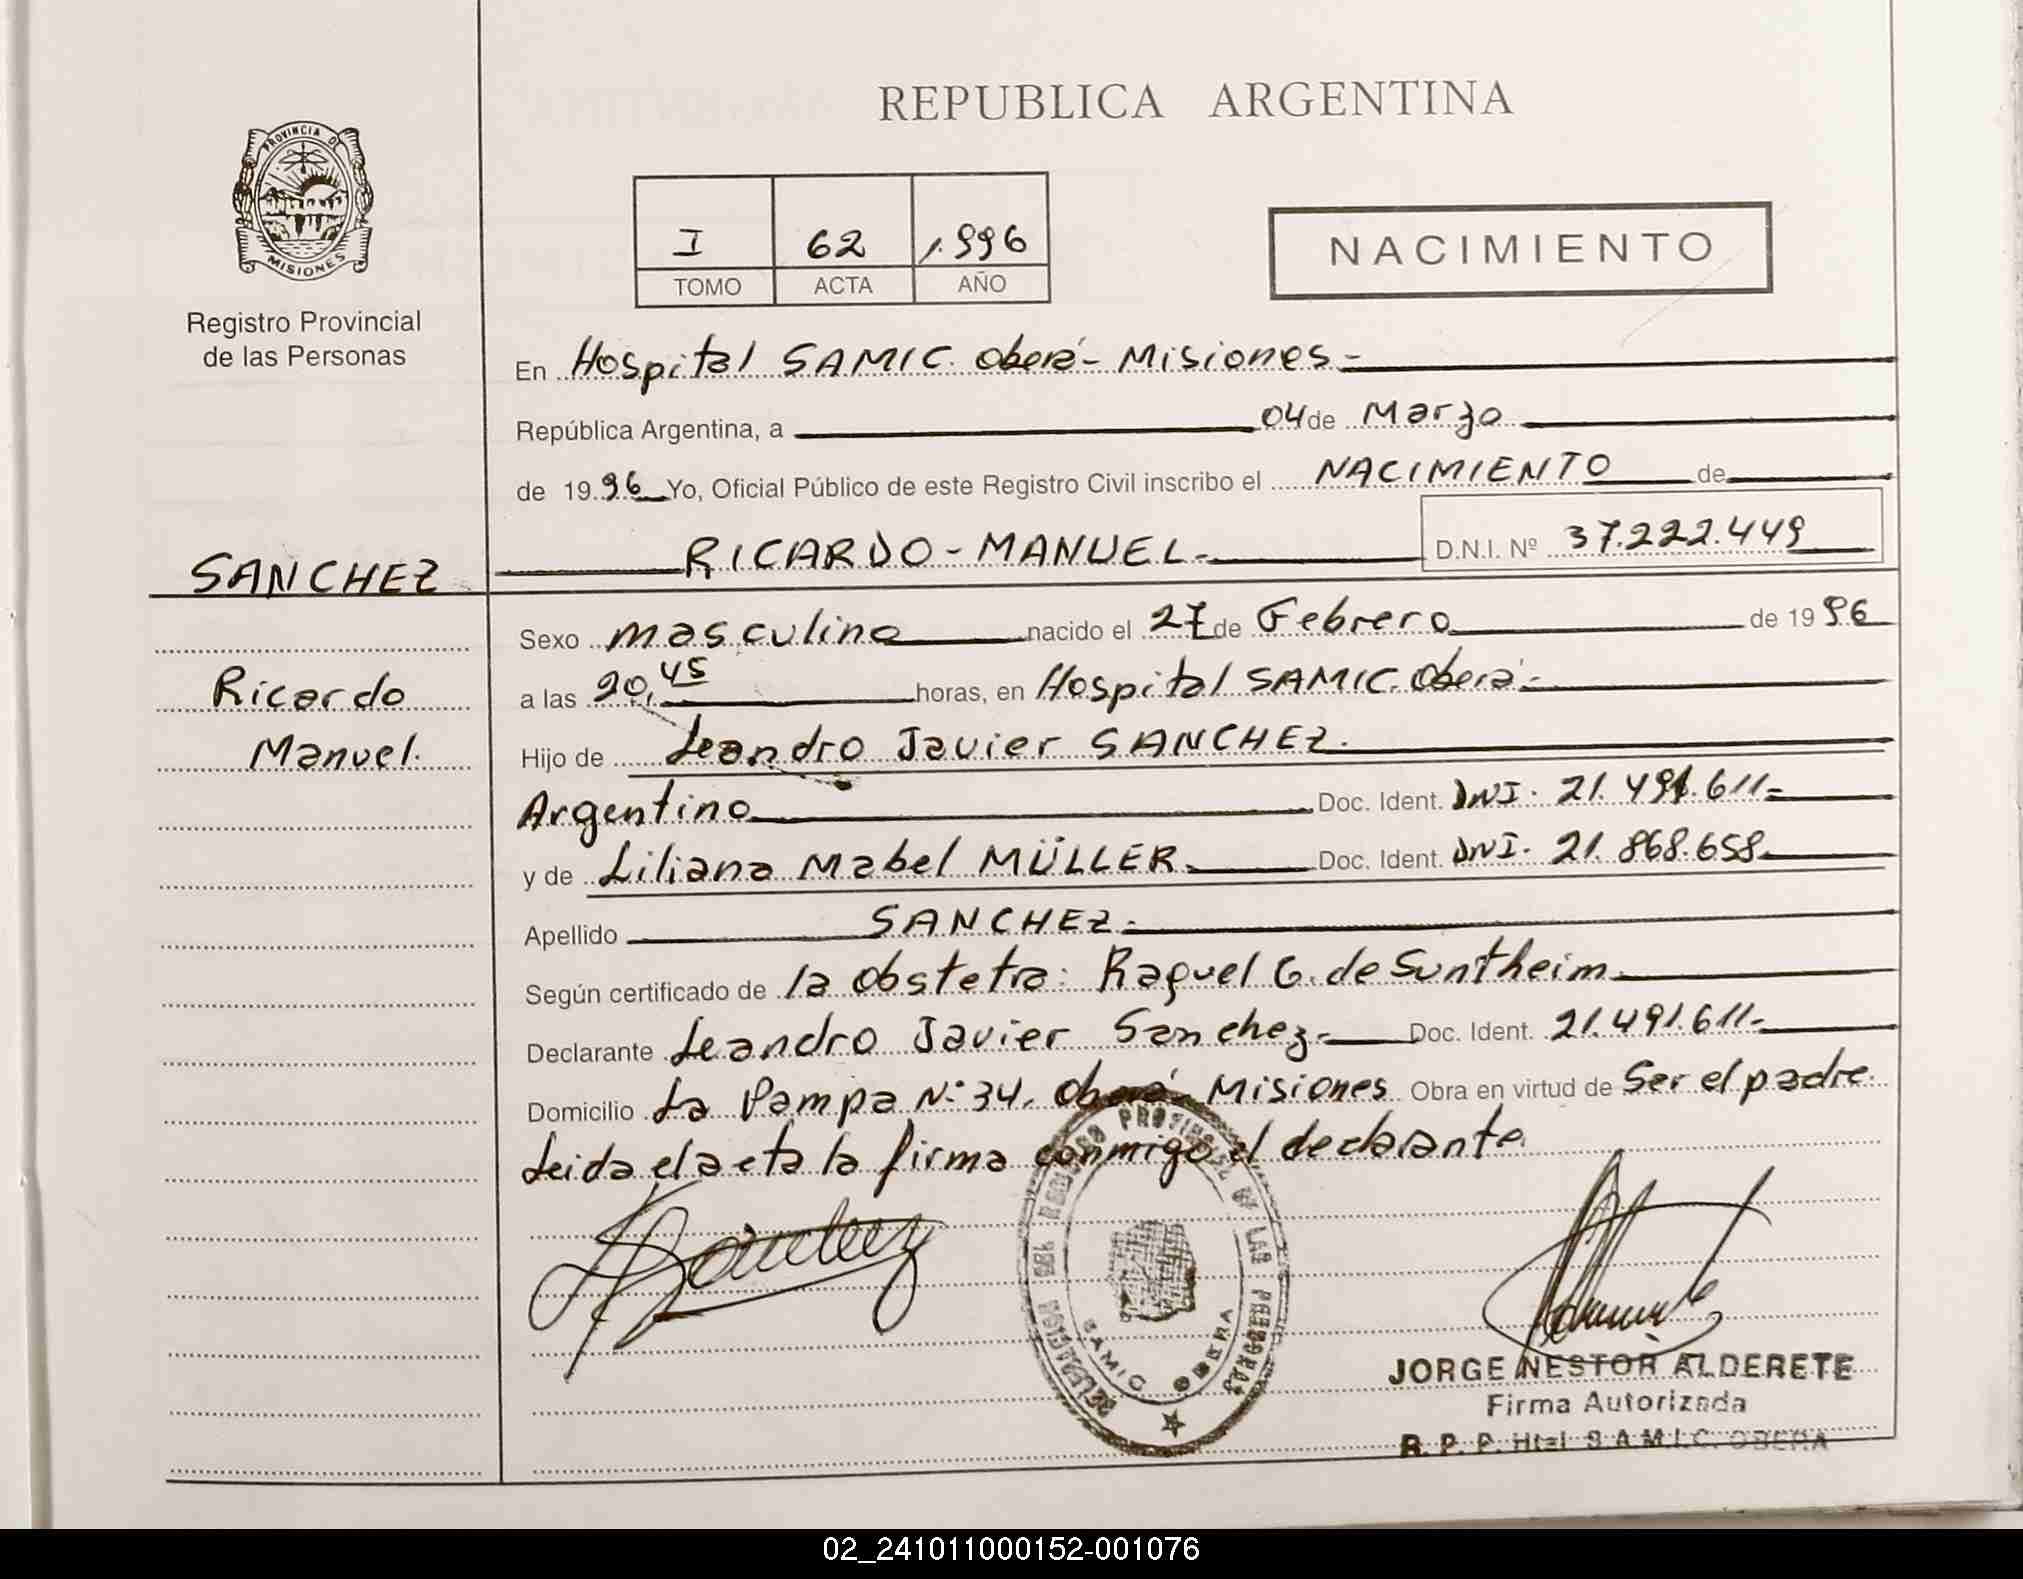 REPUBLICA ARGENTINA
PROVINCIA DE
MISIONES
Registro Provincial
de las Personas
I 62 1.996
TOMO ACTA AÑO
NACIMIENTO
En Hospital SAMIC. Oberá - Misiones -
República Argentina, a 04 de Marzo
de 19 96 Yo, Oficial Público de este Registro Civil inscribo el NACIMIENTO de
SANCHEZ
RICARDO - MANUEL - D.N.I. Nº 37.222.449
Sexo masculino nacido el 27 de Febrero de 19 96
Ricardo
a las 20,45 horas, en Hospital SAMIC. Oberá -
Manuel.
Hijo de Leandro Javier SANCHEZ.
Argentino Doc. Ident. DNI. 21.491.611-
y de Liliana Mabel MÜLLER Doc. Ident. DNI. 21.868.658
Apellido SANCHEZ.
Según certificado de la obstetra: Raquel G. de Suntheim
Declarante Leandro Javier Sanchez- Doc. Ident. 21.491.611-
Domicilio La Pampa N° 34. Oberá Misiones Obra en virtud de Ser el padre
Leida el acta la firma conmigo el declarante.
Sanchez
DELEGACION DEL REGISTRO PROVINCIAL DE LAS PERSONAS
SAMIC OBERA
JORGE NESTOR ALDERETE
Firma Autorizada
R. P. P. Htal S.A.M.I.C. OBERA
02_241011000152-001076